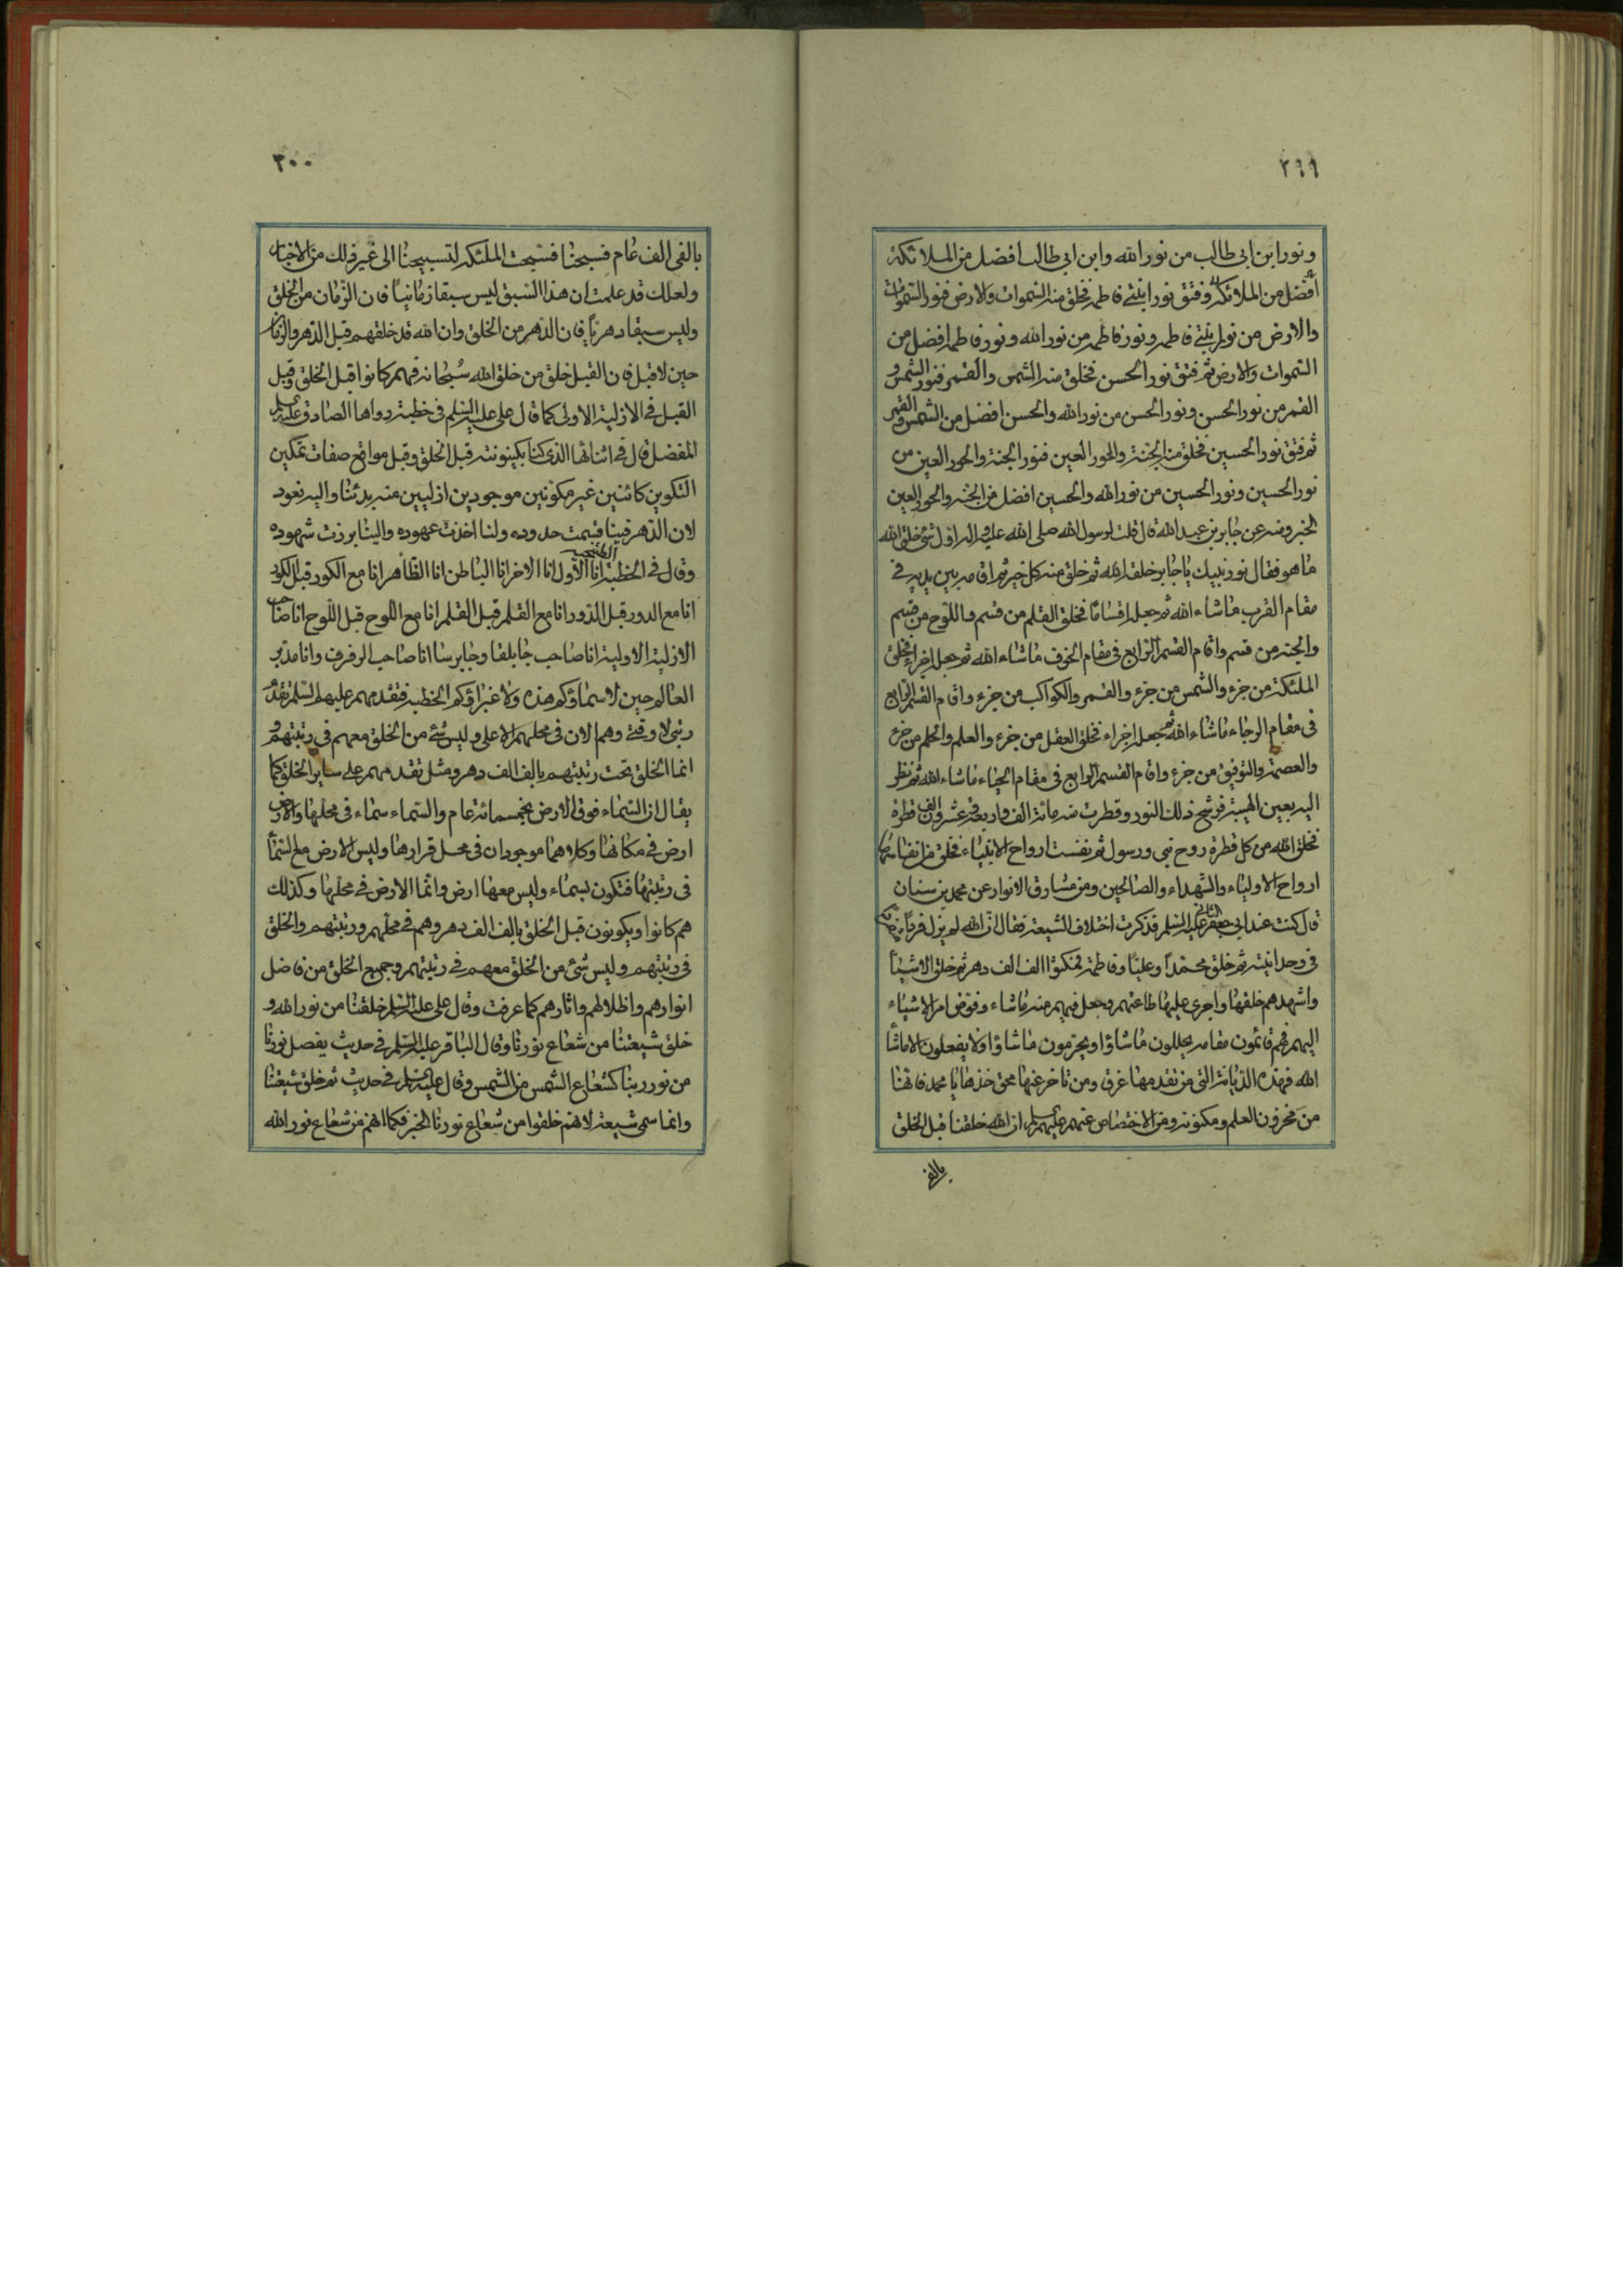 ٢٩٩
ونور ابن ابي طالب من نور الله وابن ابي طالب افضل من الملائكة
افضل من الملائكة وفتق نور ابنتي فاطمة فخلق منه السموات والارض فنور السموات
والارض من نور ابنتي فاطمة ونور فاطمة من نور الله ونور فاطمة افضل من
السموات والارض ثم فتق نور الحسن فخلق منه الشمس والقمر فنور الشمس و
القمر من نور الحسن ونور الحسن من نور الله والحسن افضل من الشمس والقمر
ثم فتق نور الحسين فخلق منه الجنة والحور العين فنور الجنة والحور العين من
نور الحسين ونور الحسين من نور الله والحسين افضل من الجنة والحور العين
الخبر ومنه عن جابر بن عبد الله قال قلت لرسول الله صلى الله عليه واله اول شئ خلق الله
ما هو فقال نور نبيك يا جابر خلقه الله ثم خلق منه كل خير ثم اقامه بين يديه في
مقام القرب ما شاء الله ثم جعله اقساما فخلق القلم من قسم واللوح من قسم
والجنة من قسم واقام القسم الرابع في مقام الخوف ما شاء الله ثم جعله اجزاء فخلق
الملئكة من جزء والشمس من جزء والقمر والكواكب من جزء واقام القسم الرابع
في مقام الرجاء ما شاء الله ثم جعله اجزاء فخلق العقل من جزء والعلم والحلم من جزء
والعصمة والتوفيق من جزء واقام القسم الرابع في مقام الحياء ما شاء الله ثم نظر
اليه بعين الهيبة فرشح ذلك النور وقطرت منه مائة الف واربعة وعشرون الف قطرة
فخلق الله من كل قطرة روح نبي ورسول ثم نفست ارواح الانبياء فخلق من انفاسها
ارواح الاولياء والشهداء والصالحين ومن مشارق الانوار عن محمد بن سنان
قال كنت عند ابي جعفر الثاني عليه السلم فذكرت اختلاف الشيعة فقال ان الله لم يزل فردا
في وحدانيته ثم خلق محمدا وعليا وفاطمة فمكثوا الف الف دهر ثم خلق الاشياء
واشهدهم خلقها واجرى عليها طاعتهم وجعل فيهم منه ما شاء وفوض امر الاشياء
اليهم فهم قائمون مقامه يحللون ما شاؤا ويحرمون ما شاؤا ولا يفعلون الا ما شاء
الله فهذه الديانة التي من تقدمها غرق ومن تاخر عنها محق خذها يا محمد فانها
من مخزون العلم ومكنونه ومن الاختصاص عنهم عليهم السلم ان الله خلقنا قبل الخلق
بالفى
٣٠٠
بالفى الف عام فسبحنا فسبحت الملئكة لتسبيحنا الى غير ذلك من الاخبار
ولعلك قد علمت ان هذا السبق ليس سبقا زمانيا فان الزمان من الخلق
وليس سبقا دهريا فان الدهر من الخلق وان الله قد خلقهم قبل الدهر والزمان
حين لا قبل فان القبل خلق من خلق الله سبحانه فهم كانوا قبل الخلق وقبل
القبل في الازلية الاولى كما قال علي عليه السلم في خطبة رواها الصادق عليه السلم
المفضل قال في اثنائها الذى كنا بكينونته قبل الخلق وقبل مواقع صفات تمكين
التكوين كائنين غير مكونين موجودين ازليين منه بدئنا واليه نعود
لان الدهر فينا قسمت حدوده ولنا اخذت عهوده والينا برزت شهوده
وقال في الخطبة انا الاول انا الاخر انا الباطن انا الظاهر انا مع الكور قبل الكور
انا مع الدور قبل الدور انا مع القلم قبل القلم انا مع اللوح قبل اللوح انا صاحب
الازلية الاولية انا صاحب جابلقا وجابرسا انا صاحب الرفرف وانا مدبر
العالم حين لا سماؤكم هذه ولا غبراؤكم الخطبة فتقدمهم عليهم السلم تقدم
رتبى لا وقتى وهم الان في محلهم الاعلى وليس شئ من الخلق معهم في رتبتهم و
انما الخلق تحت رتبتهم بالف الف دهر ومثل تقدمهم على ساير الخلق كما
يقال ان السماء فوق الارض بخمسمائة عام والسماء سماء في محلها والارض
ارض في مكانها وكلاهما موجودان في محل قرارها وليس الارض مع السماء
في رتبتها فتكون بسماء وليس معها ارض وانما الارض في محلها وكذلك
هم كانوا ويكونون قبل الخلق بالف الف دهر وهم في محلهم ورتبتهم والخلق
في رتبتهم وليس شئ من الخلق معهم في رتبتهم وجميع الخلق من فاضل
انوارهم واظلالهم واثارهم كما عرفت وقال علي عليه السلم خلقنا من نور الله و
خلق شيعتنا من شعاع نورنا وقال الباقر عليه السلم في حديث يفصل نورنا
من نور ربنا كشعاع الشمس من الشمس وقال عليه السلم في حديث ثم خلق شيعتنا
وانما سمى شيعة لانهم خلقوا من شعاع نورنا الخبر فكما انهم من شعاع نور الله